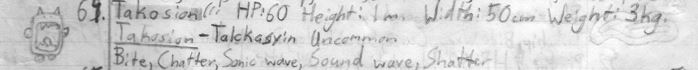 69. Takosion HP:60 Height: 1m. Width: 50cm Weight: 3kg.
Takosion - Talckasyin Uncommon
Bite, Chatter, Sonic wave, Sound wave, Shatter